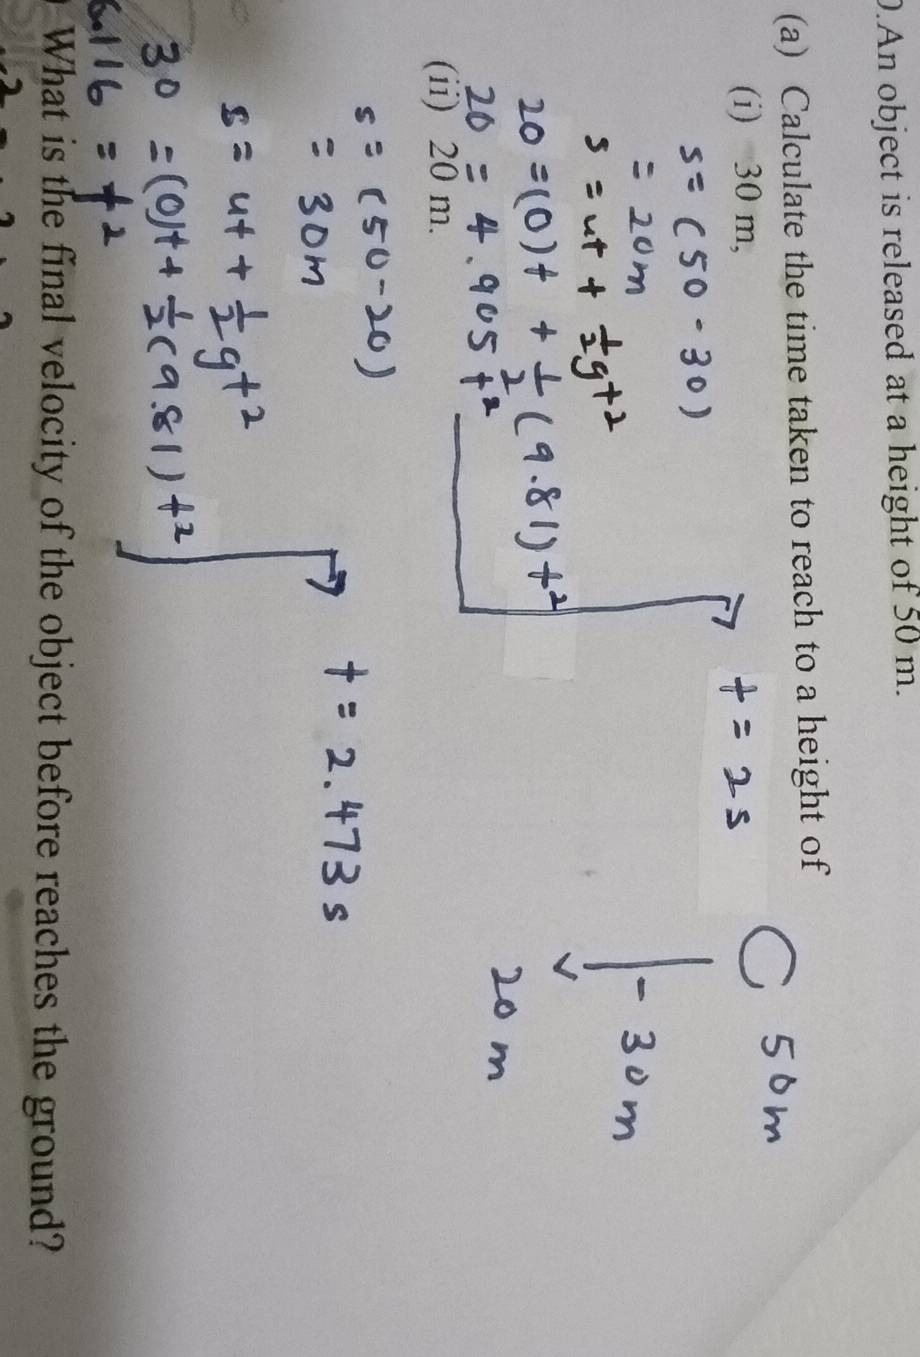 ).An object is released at a height of 50 m.
(a) Calculate the time taken to reach to a height of
(i) 30 m,
s = (50 - 30)
= 20m
s = ut + ½gt²
20 = (0)t + ½(9.81)t²
20 = 4.905t²
t = 2s
50m
30m
20m
(ii) 20 m.
s = (50-20)
= 30m
s = ut + ½gt²
30 = (0)t + ½(9.81)t²
6.116 = t²
t = 2.473s
What is the final velocity of the object before reaches the ground?